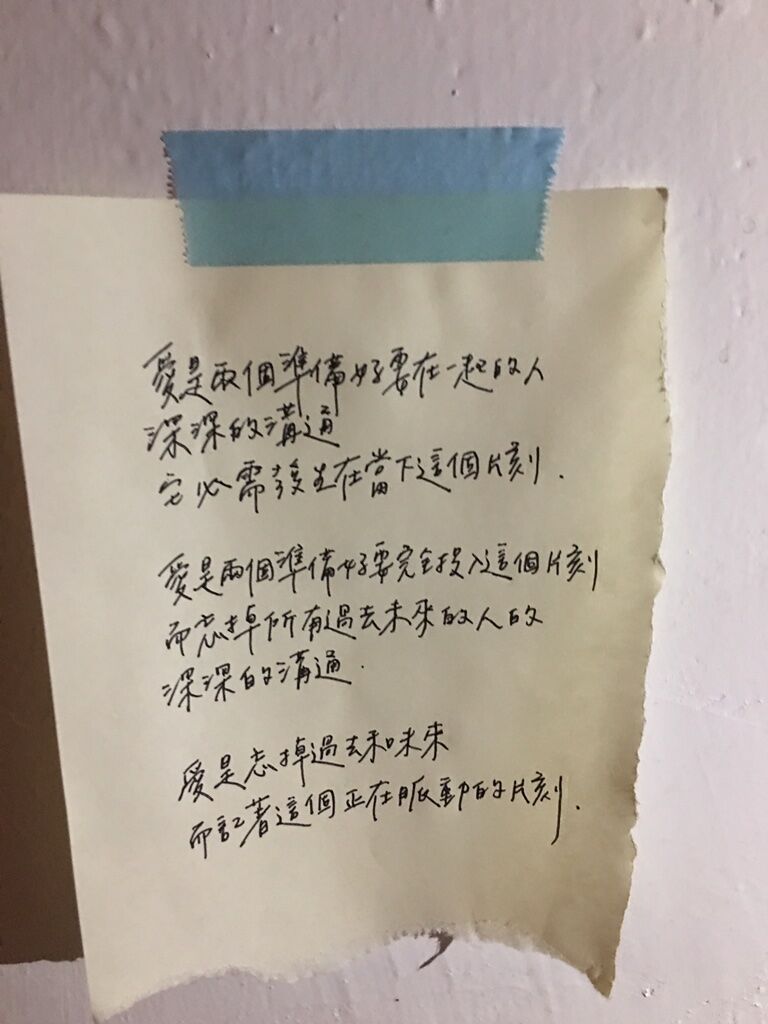 愛是兩個準備好要在一起的人
深深的溝通
它必需發生在當下這個片刻.
愛是兩個準備好要完全投入這個片刻
而忘掉所有過去未來的人的
深深的溝通.
愛是忘掉過去和未來
而記著這個正在脈動的片刻.